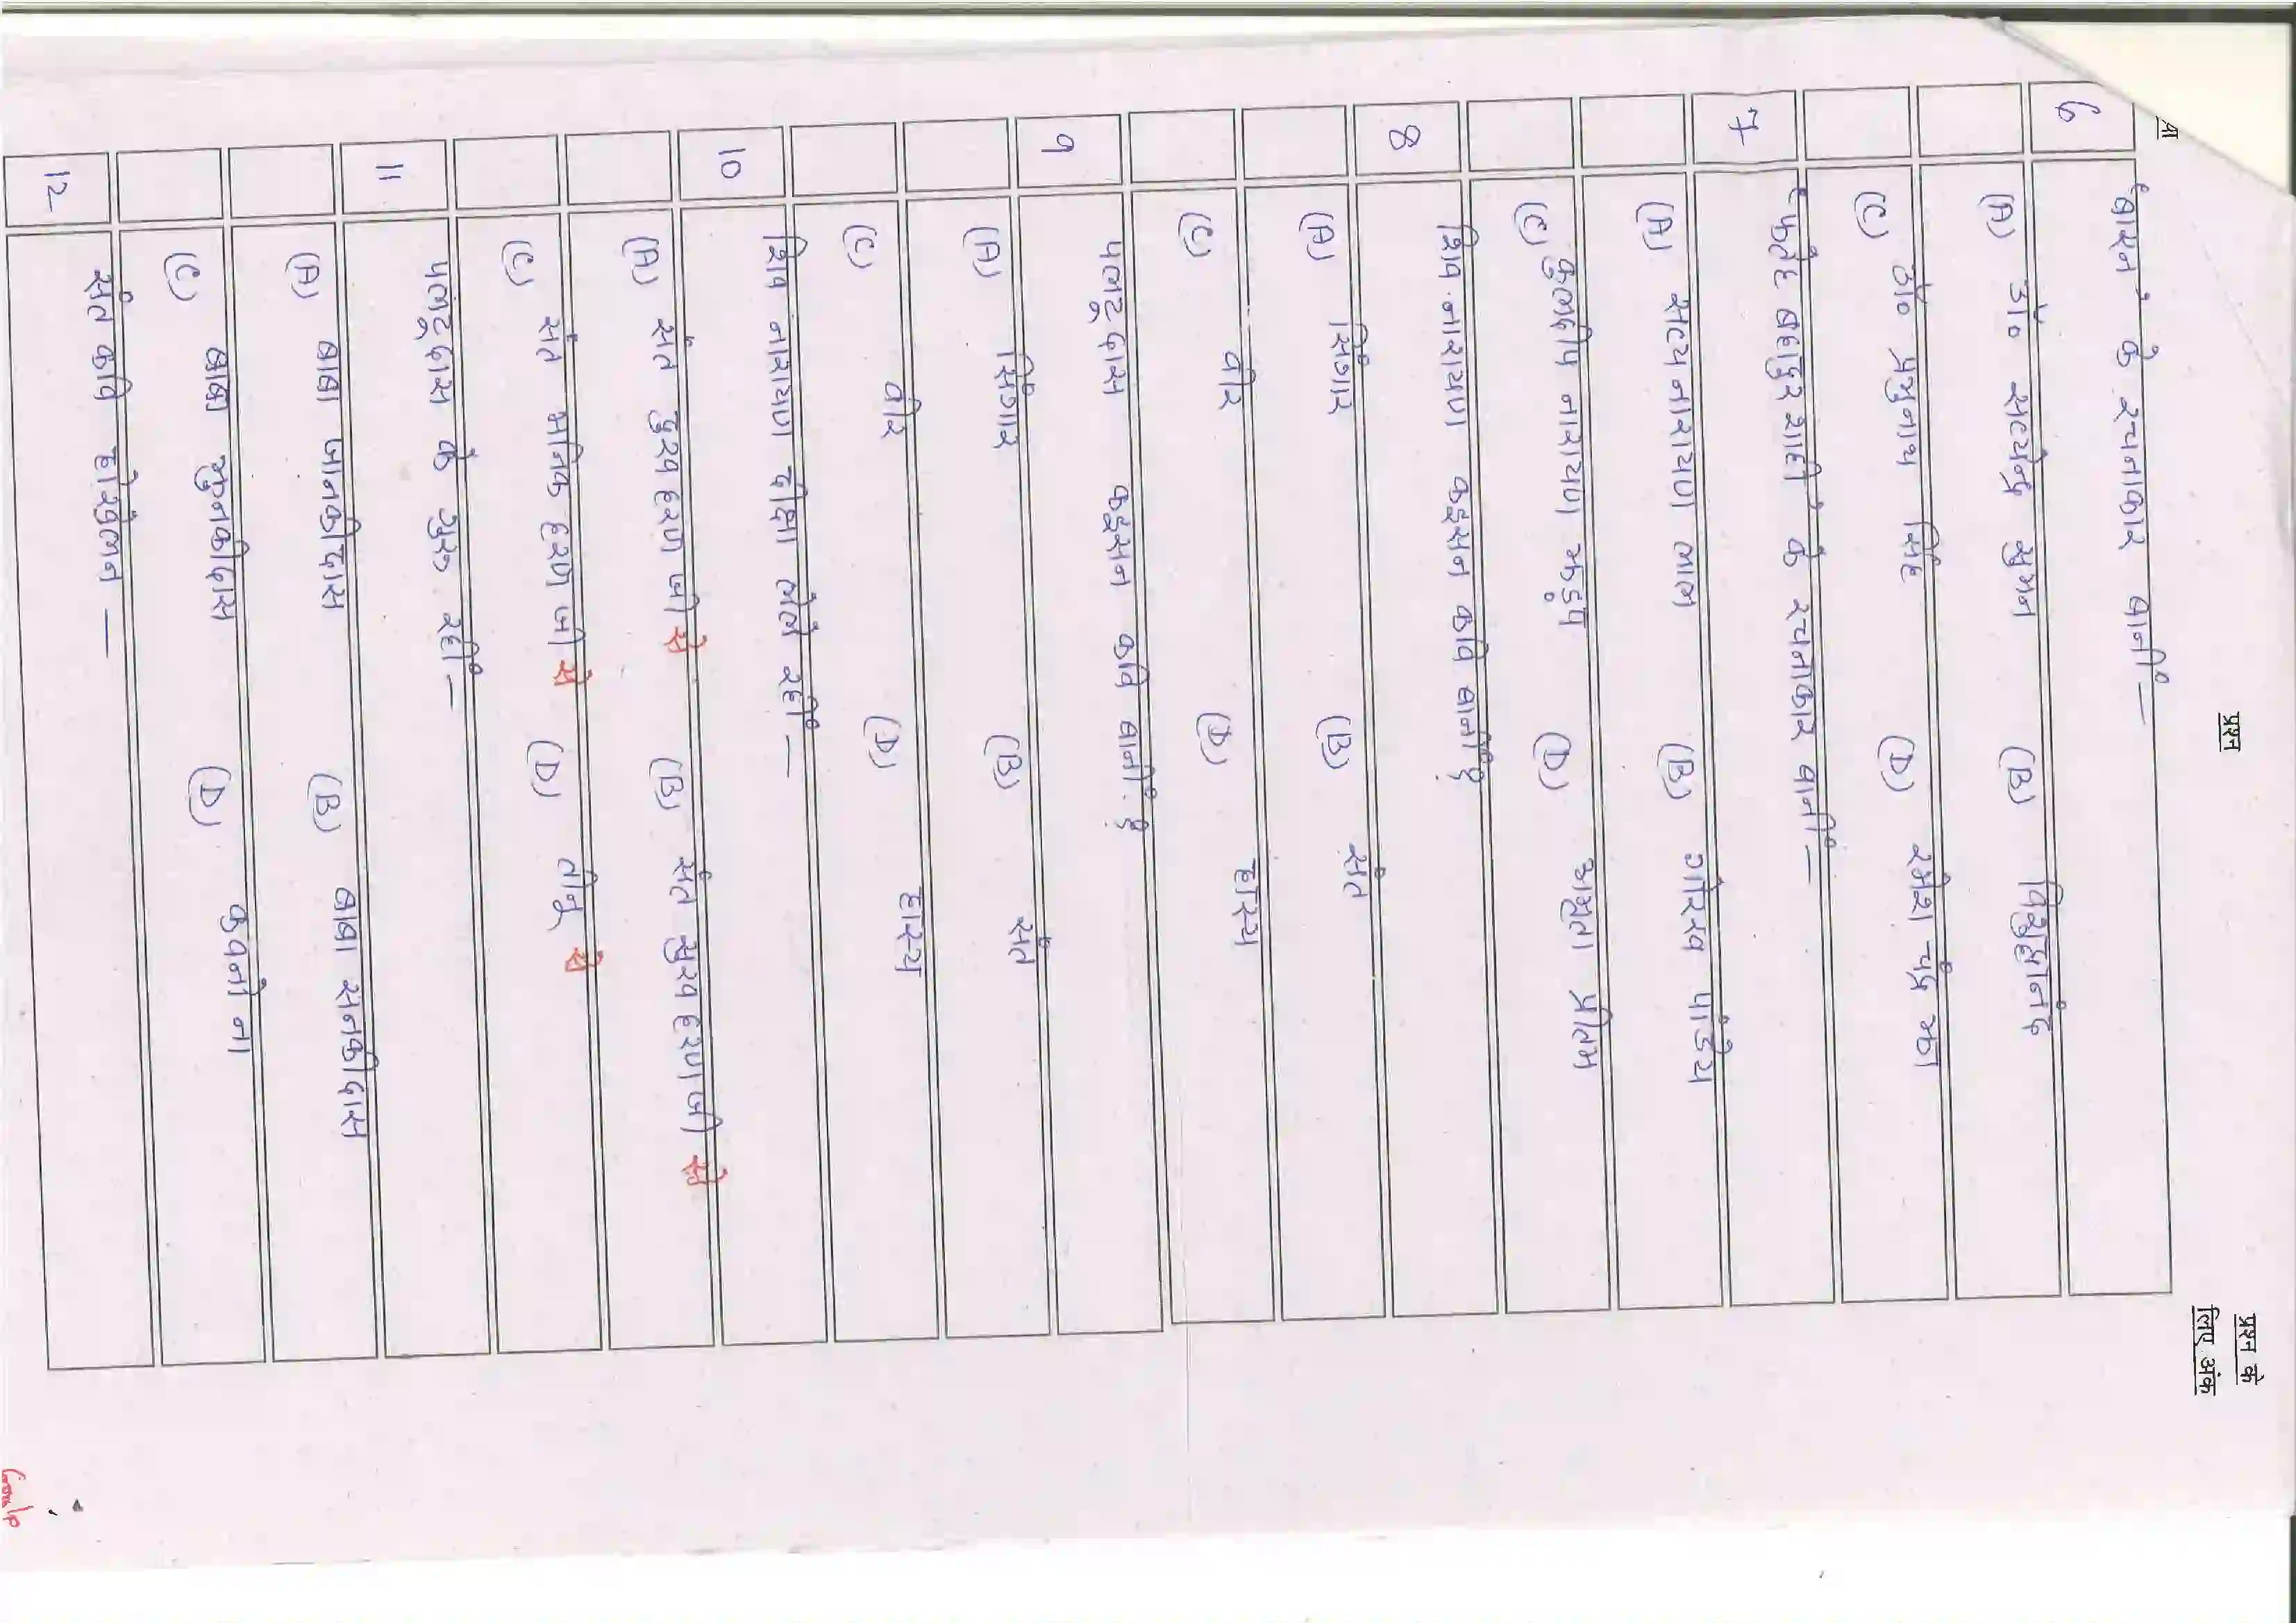 प्रश्न
प्रश्न के
लिए अंक
6 'बारन' के रचनाकार बानी —
(A) डॉ० सत्येन्द्र सुमन (B) विशुद्धानंद
(C) डॉ० प्रभुनाथ सिंह (D) रमेश चंद्र झा
7 'फतेह बहादुर शाही' के रचनाकार बानीं —
(A) सत्य नारायण लाल (B) गोरख पांडेय
(C) कुलदीप नारायण झड़प (D) अक्षुता प्रीतम
8 शिव नारायण कइसन कवि बानीं?
(A) सिंगार (B) संत
(C) वीर (D) हास्य
9 पलटू दास कइसन कवि बानीं?
(A) सिंगार (B) संत
(C) वीर (D) हास्य
10 शिव नारायण दीक्षा लेले रहीं —
(A) संत दुख हरण जी से (B) संत सुख हरण जी से
(C) संत मानिक हरण जी से (D) तीनू से
11 पलटू दास के गुरु रहीं —
(A) बाबा जानकीदास (B) बाबा सनकीदास
(C) बाबा झुनकीदास (D) कवनो ना
12 संत कवि होखेलन —